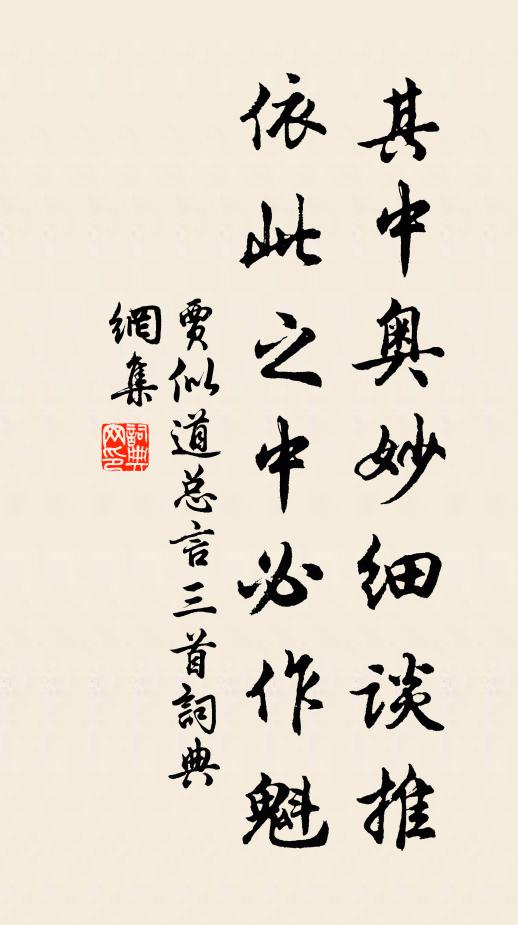 其中奥妙细谈推
依此之中必作魁
賈似道总言三首詞典
網集
詞典
网印